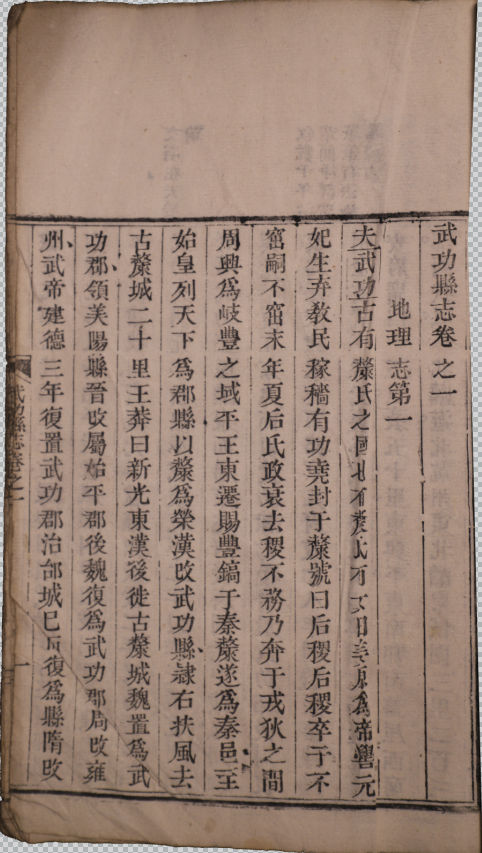 武功縣志卷之一
地理志第一
夫武功古有斄氏之國也有斄氏有女曰姜原爲帝嚳元
妃生弃教民稼穡有功堯封于斄號曰后稷后稷卒子不
窋嗣不窋末年夏后氏政衰去稷不務乃奔于戎狄之間
周興爲岐豐之域平王東遷賜豐鎬于秦斄遂爲秦邑至
始皇列天下爲郡縣以斄爲榮漢改武功縣隷右扶風去
古斄城二十里王莽曰新光東漢後徙古斄城魏置爲武
功郡領美陽縣晉改屬始平郡後魏復爲武功郡周改雍
州武帝建德三年復置武功郡治邰城已而復爲縣隋改
武功縣志卷之一
一